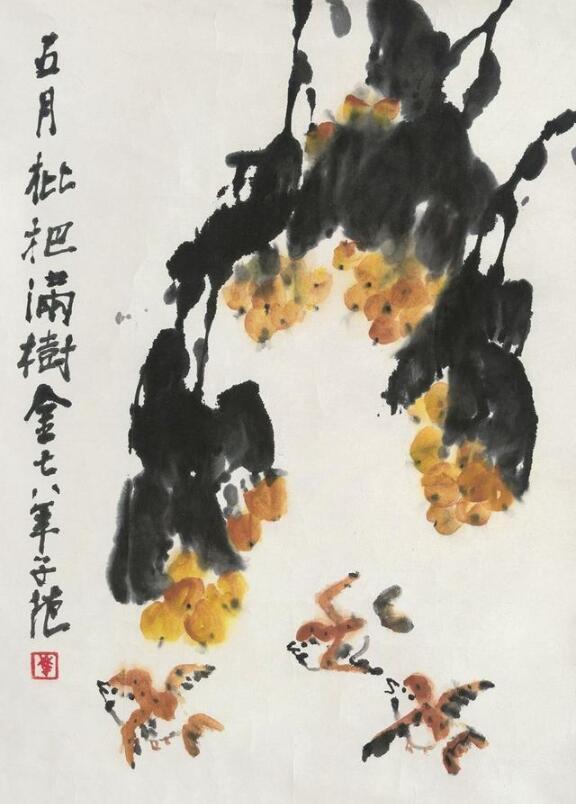 五月枇杷滿樹金七八年子范